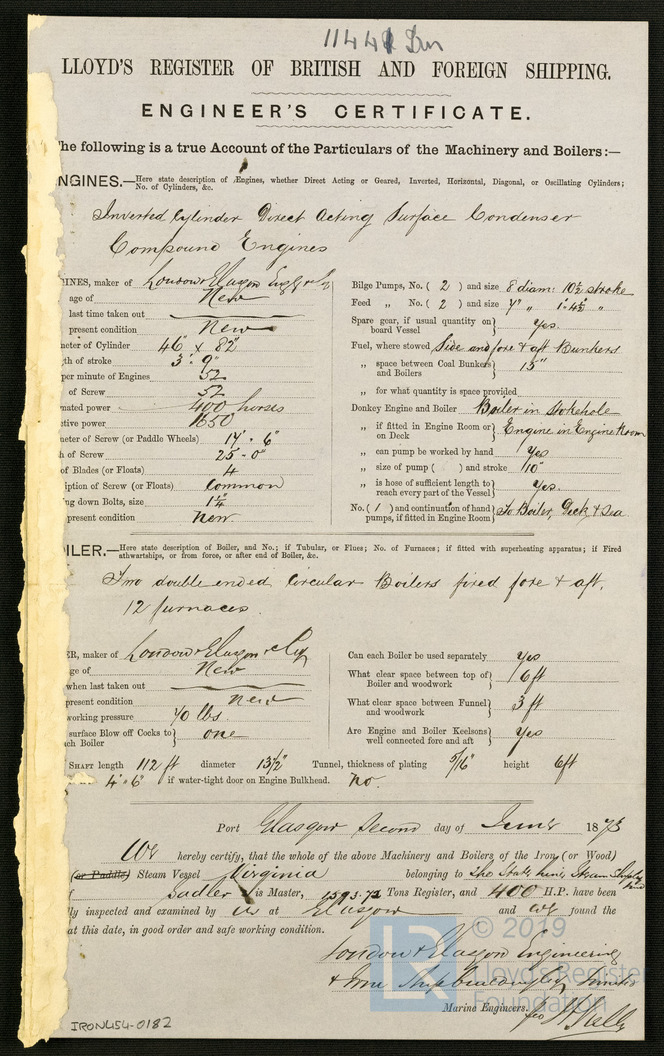 11441 Iron
LLOYD'S REGISTER OF BRITISH AND FOREIGN SHIPPING.
ENGINEER'S CERTIFICATE.
he following is a true Account of the Particulars of the Machinery and Boilers:—
NGINES.—Here state description of Engines, whether Direct Acting or Geared, Inverted, Horizontal, Diagonal, or Oscillating Cylinders;
No. of Cylinders, &c.
Inverted Cylinder Direct Acting Surface Condenser
Compound Engines
INES, maker of London & Glasgow
age of New
last time taken out
present condition New
meter of Cylinder 46" x 82"
gth of stroke 3' 9"
per minute of Engines 52
of Screw 52
nated power 400 horses
ctive power 1650
meter of Screw (or Paddle Wheels) 17' 6"
h of Screw 25'-0"
of Blades (or Floats) 4
iption of Screw (or Floats) Common
ng down Bolts, size 1¼"
present condition New
Bilge Pumps, No. ( 2 ) and size 8 diam: 10½ stroke
Feed „ No. ( 2 ) and size 7" „ 1'-4½ „
Spare gear, if usual quantity on
board Vessel } Yes.
Fuel, where stowed Side and fore & aft Bunkers
„ space between Coal Bunkers
and Boilers } 15"
„ for what quantity is space provided
Donkey Engine and Boiler Boiler in Stokehole
„ if fitted in Engine Room or
on Deck } Engine in Engine Room
„ can pump be worked by hand Yes
„ size of pump ( ) and stroke 10"
„ is hose of sufficient length to
reach every part of the Vessel } Yes.
No. ( 1 ) and continuation of hand
pumps, if fitted in Engine Room } To Boiler, Deck, & Sea
OILER.—Here state description of Boiler, and No.; if Tubular, or Flues; No. of Furnaces; if fitted with superheating apparatus; if Fired
athwartships, or from force, or after end of Boiler, &c.
Two double ended Circular Boilers fired fore & aft.
12 furnaces.
ER, maker of London & Glasgow
ge of New
when last taken out
present condition New
working pressure 70 lbs.
surface Blow off Cocks to
ch Boiler } one
Can each Boiler be used separately Yes
What clear space between top of
Boiler and woodwork } 6 ft
What clear space between Funnel
and woodwork } 3 ft
Are Engine and Boiler Keelsons
well connected fore and aft } Yes
SHAFT length 112 ft diameter 13½" Tunnel, thickness of plating 5/16" height 6ft
4'-6" if water-tight door on Engine Bulkhead. No.
Port Glasgow Second day of June 1873
We hereby certify, that the whole of the above Machinery and Boilers of the Iron (or Wood)
(or Paddle) Steam Vessel Virginia belonging to the State Line Steam
Sadler is Master, 1593.72 Tons Register, and 400 H.P. have been
lly inspected and examined by us at Glasgow and we found the
at this date, in good order and safe working condition.
London & Glasgow Engineering
& Iron Shipbuilding Co Limited
Marine Engineers.
Kelly
IRON454-0182
© 2019
Lloyd's Register
Foundation
LR